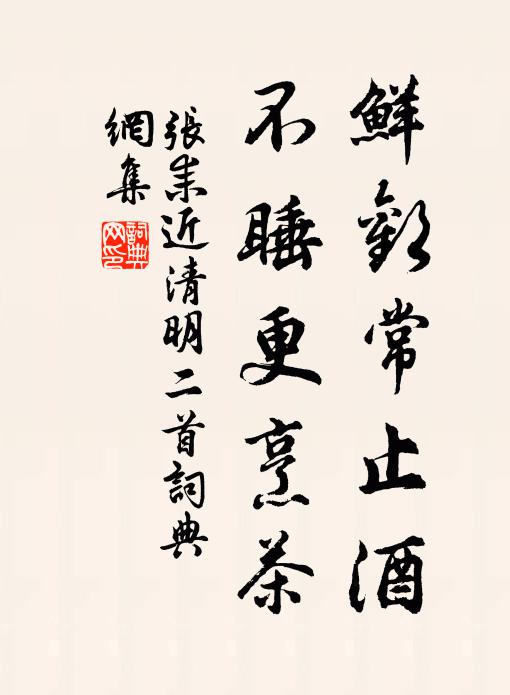 鮮歡常止酒
不睡更烹茶
張耒近清明二首詞典
網集
詞典
网印